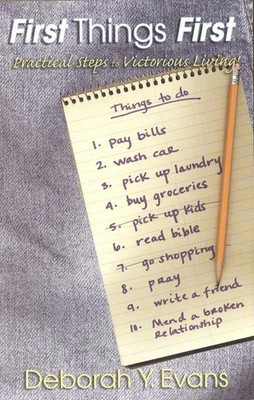 First Things First
Practical Steps to Victorious Living
Things to do
1. pay bills
2. wash car
3. pick up laundry
4. buy groceries
5. pick up kids
6. read bible
7. go shopping
8. pray
9. write a friend
10. Mend a broken
Relationship
Deborah Y. Evans